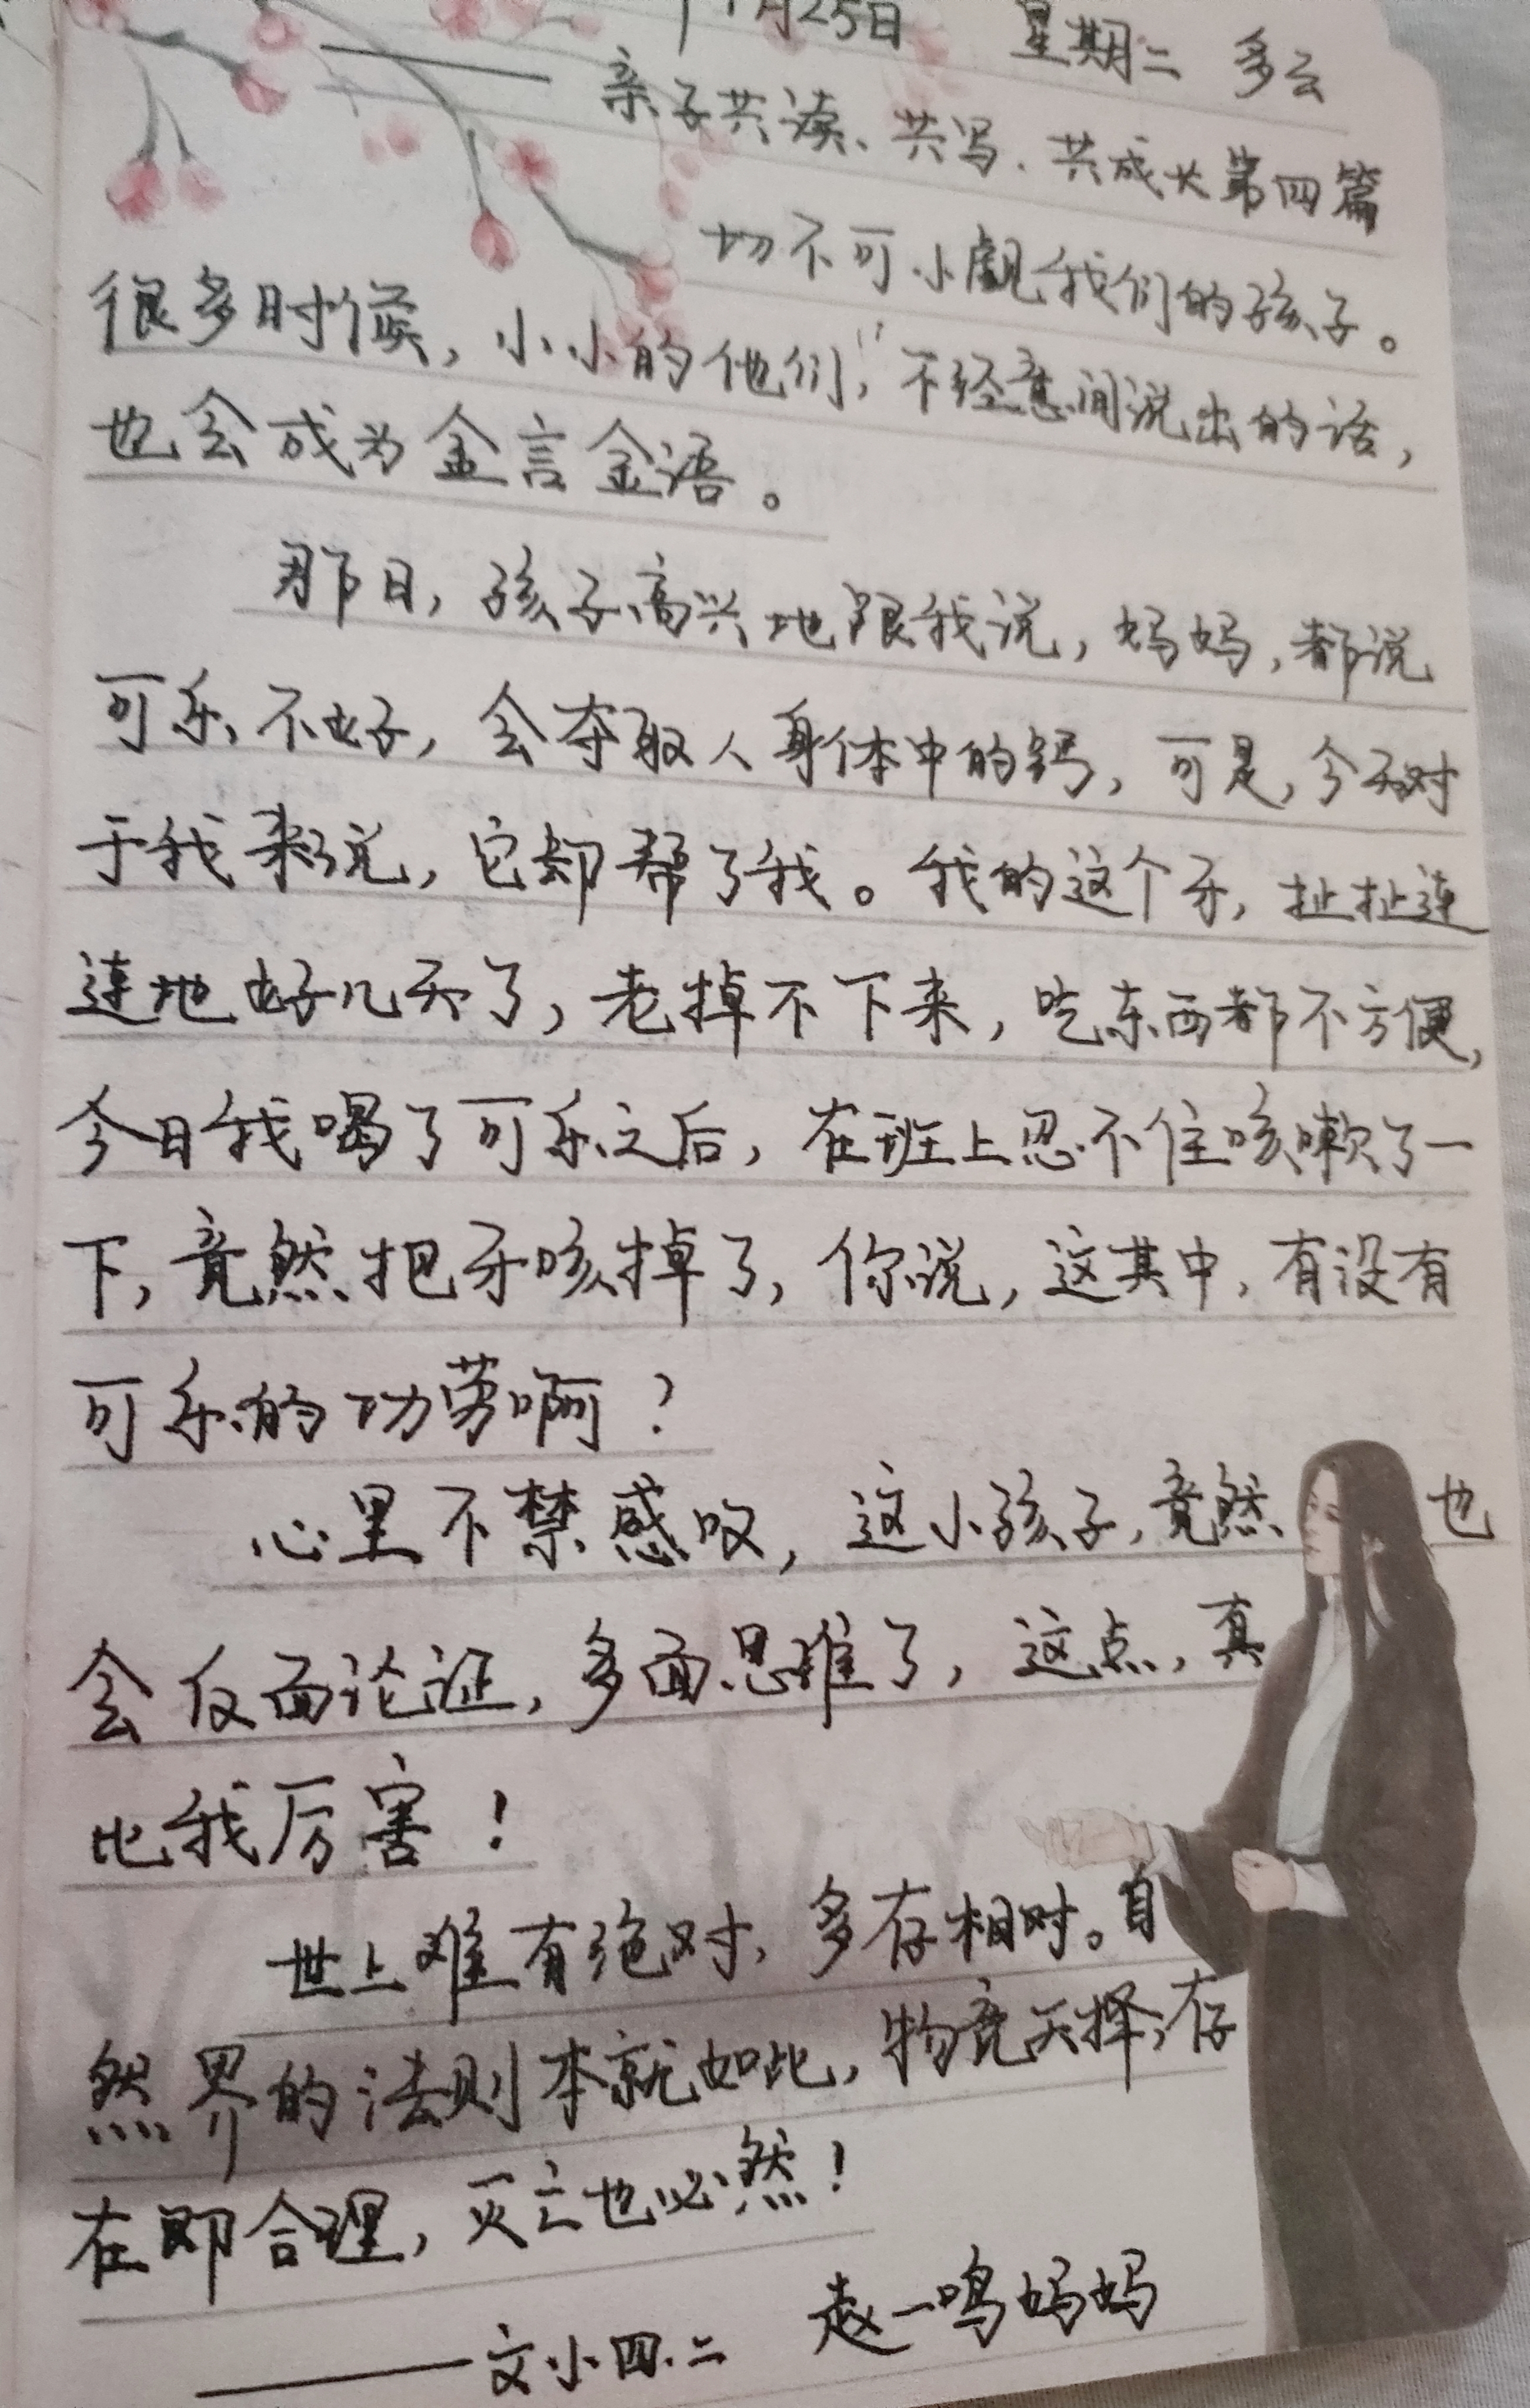 11月25日 星期二 多云
——亲子共读、共写、共成长第四篇
切不可小觑我们的孩子。
很多时候，小小的他们，不经意间说出的话，
也会成为金言金语。
那日，孩子高兴地跟我说，妈妈，都说
可乐不好，会夺取人身体中的钙，可是，今天对
于我来说，它却帮了我。我的这个牙，扯扯连
连地好几天了，老掉不下来，吃东西都不方便，
今日我喝了可乐之后，在班上忍不住咳嗽了一
下，竟然把牙咳掉了，你说，这其中，有没有
可乐的功劳啊？
心里不禁感叹，这小孩子，竟然也
会反面论证，多面思维了，这点，真
比我厉害！
世上难有绝对，多存相对。自
然界的法则本就如此，物竞天择，存
在即合理，灭亡也必然！
——文小四.二 赵一鸣妈妈